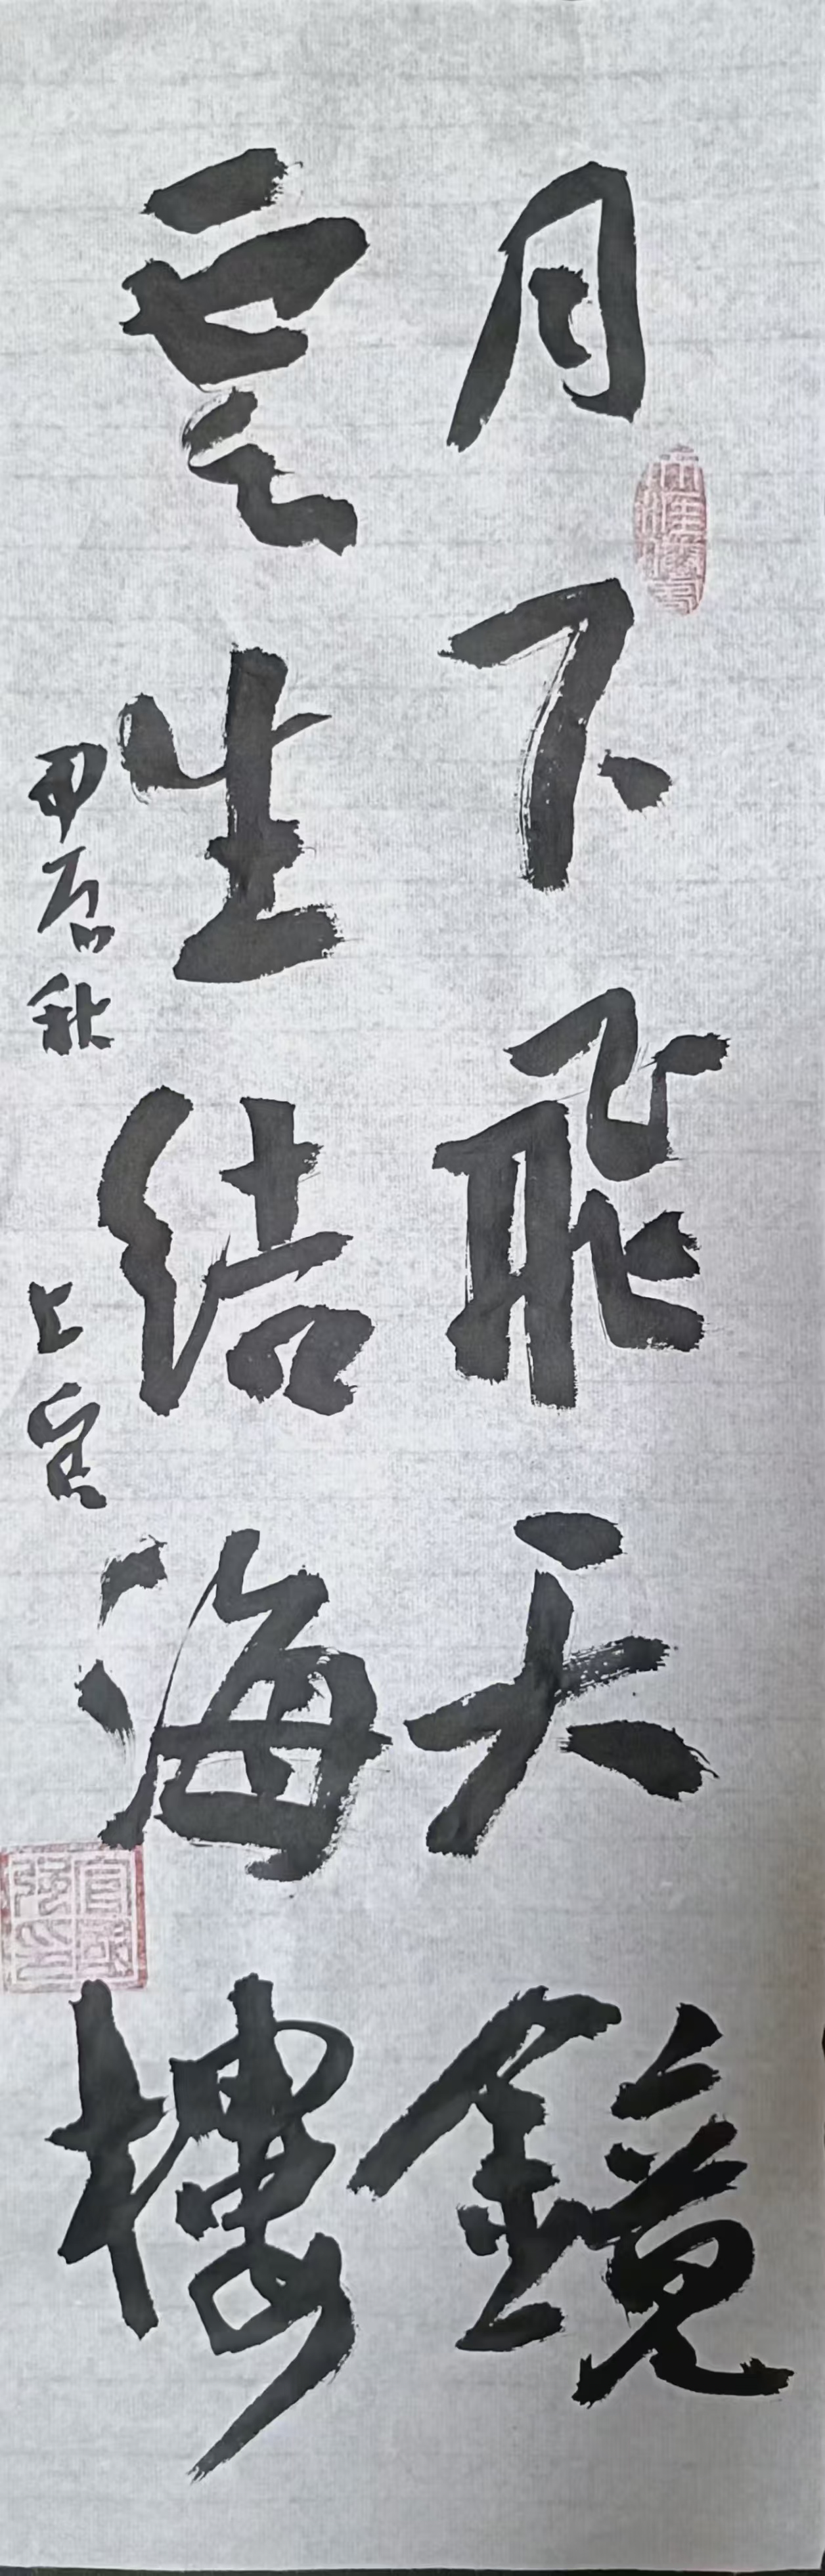 月下飛天鏡
雲生结海樓
甲辰秋